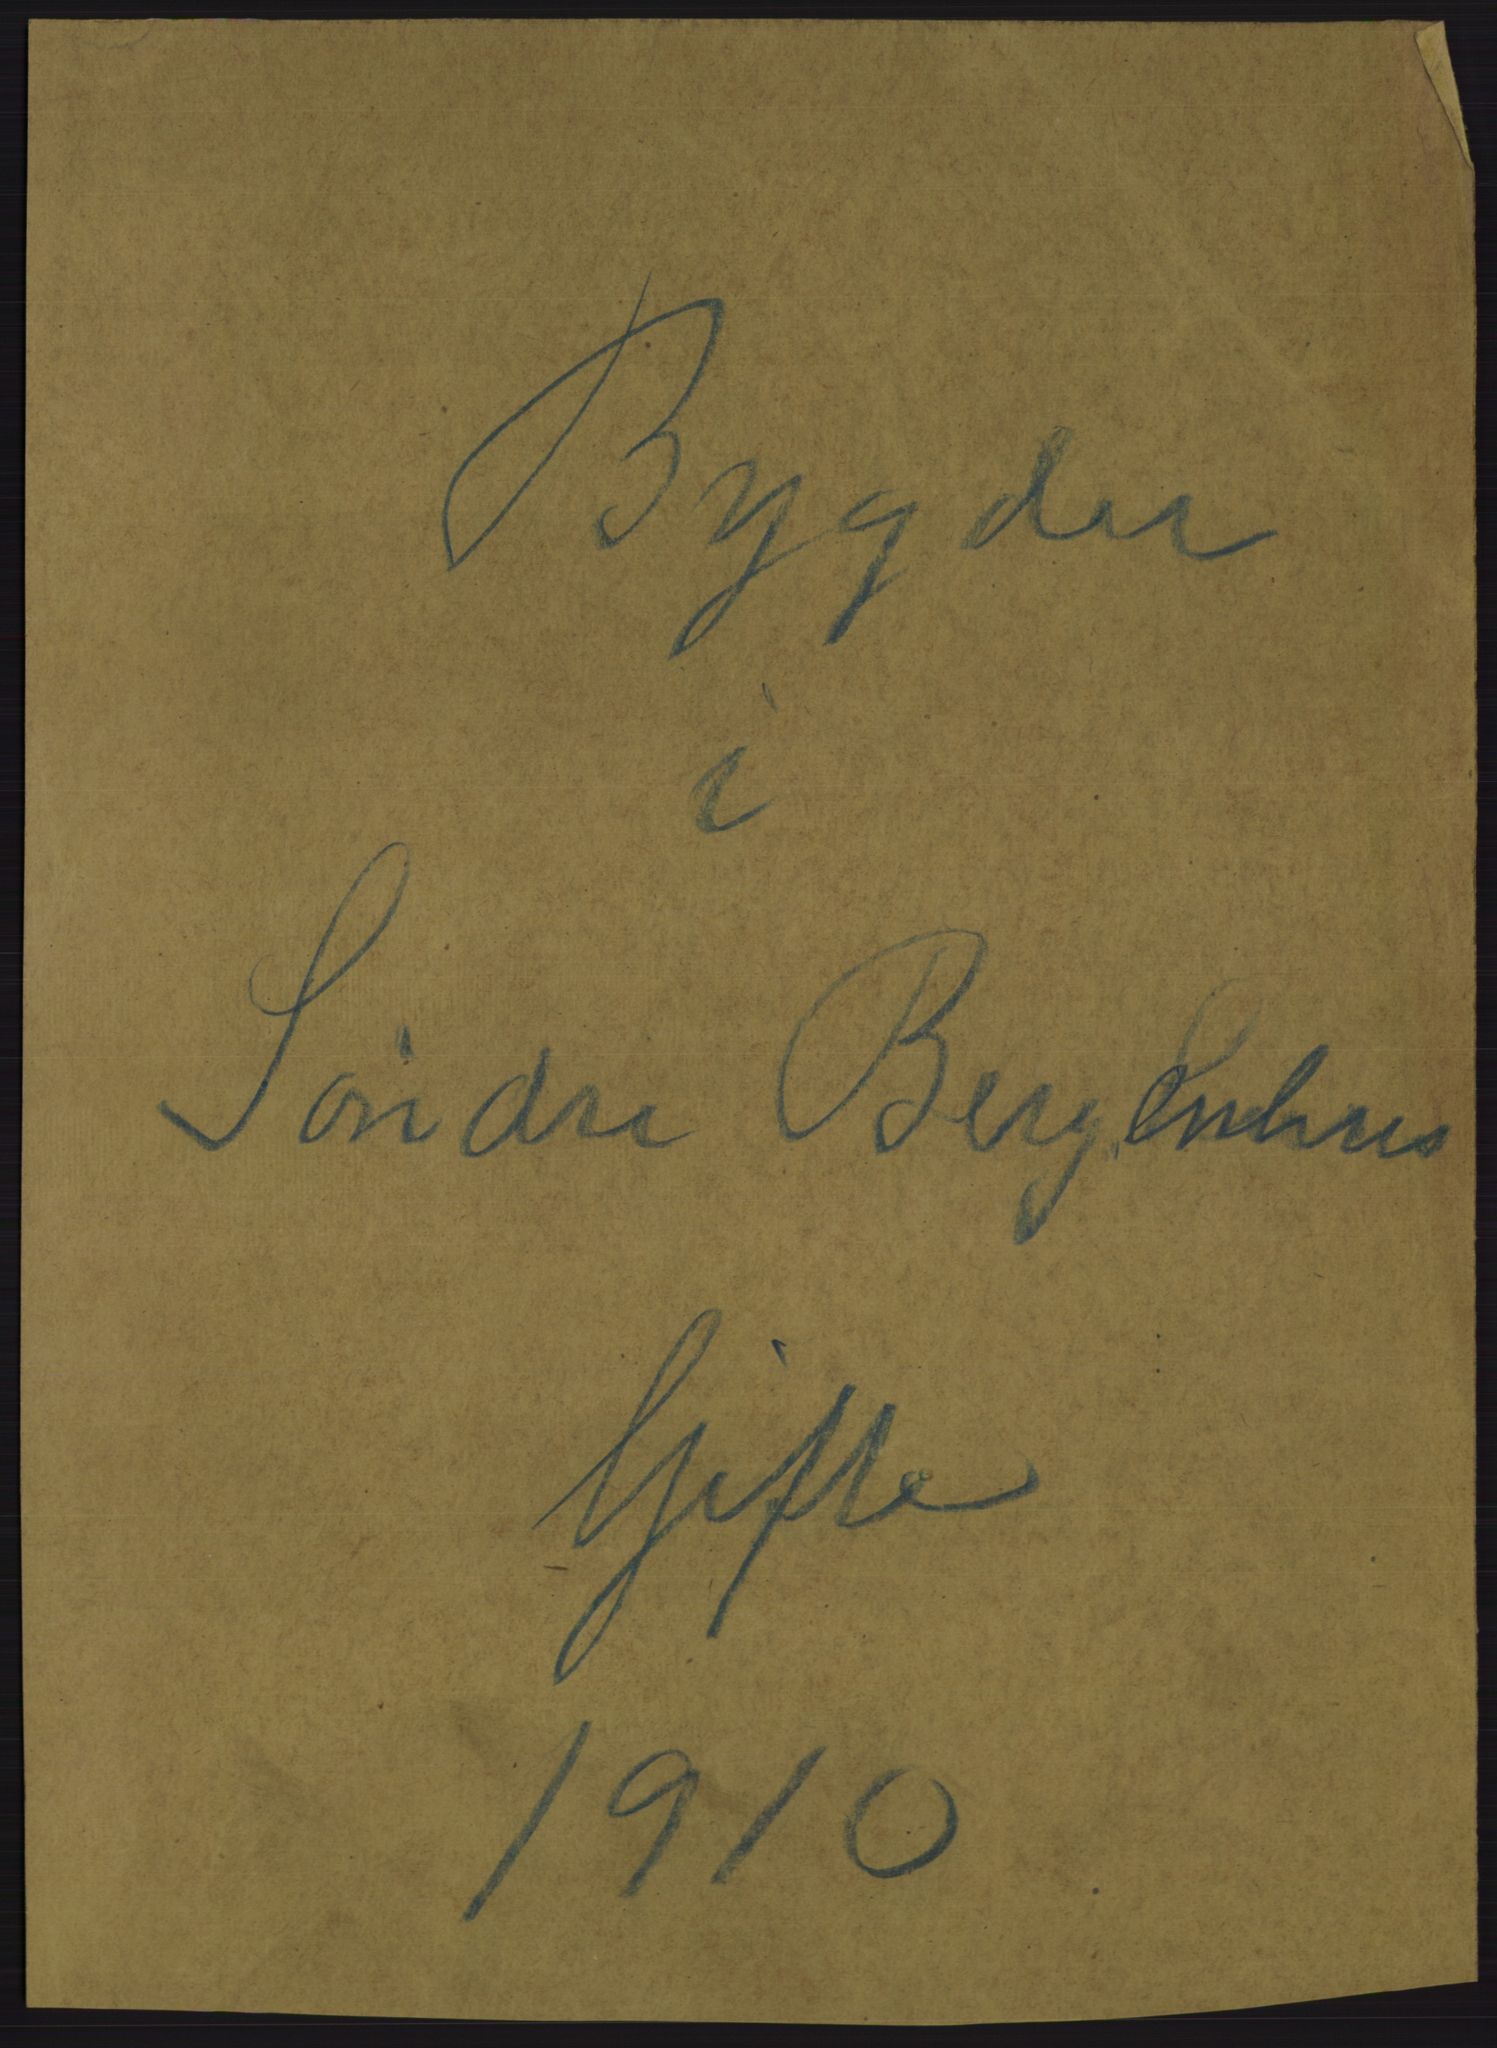 Bygder
i
Söndre Bergenhus
Gifte
1910